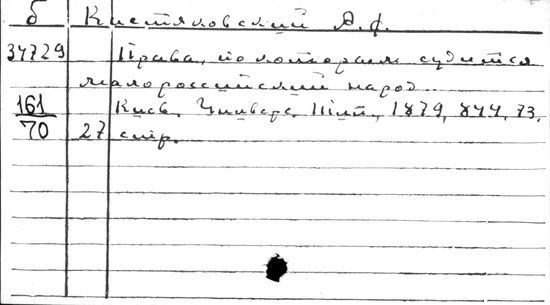 б Кистяковский А.Ф.
34729 Права, по которым судится
малороссийский народ.
161 Киев, Универс. тип., 1879, 844, 73,
70 27 стр.